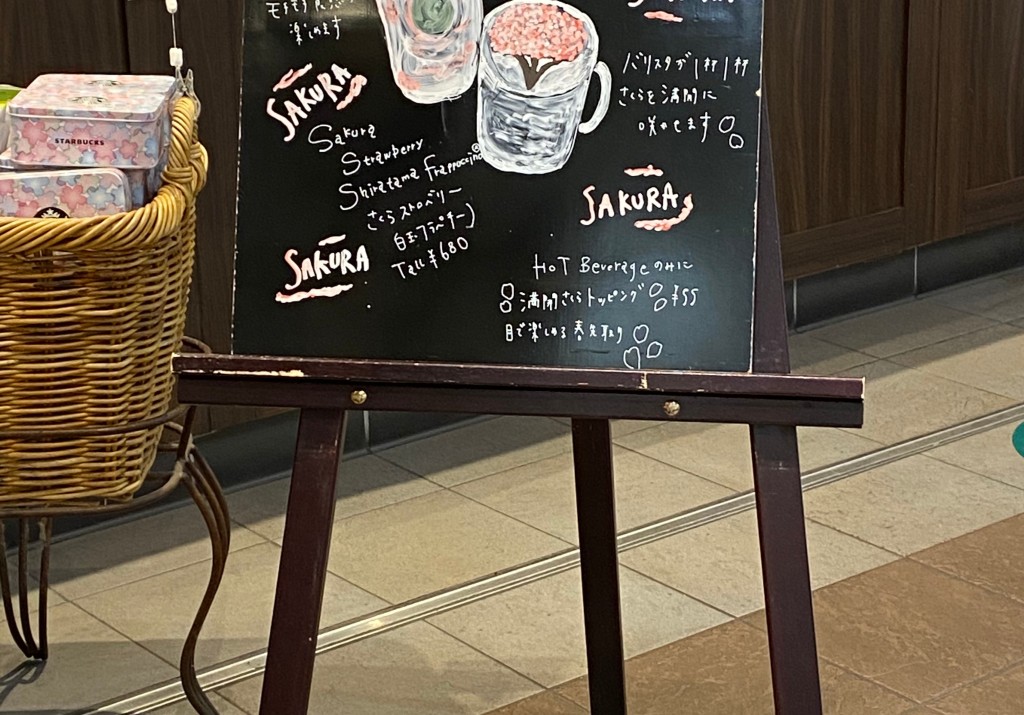 楽しめます
SAKURA
Sakura
Strawberry
Shiratama Frappuccino®
さくらストロベリー
白玉フラペチーノ
Tall ¥680
SAKURA
バリスタが1杯1杯
さくらを満開に
咲かせます
SAKURA
HoT Beverageのみに
満開さくらトッピング ¥55
目で楽しめる春先取り
STARBUCKS